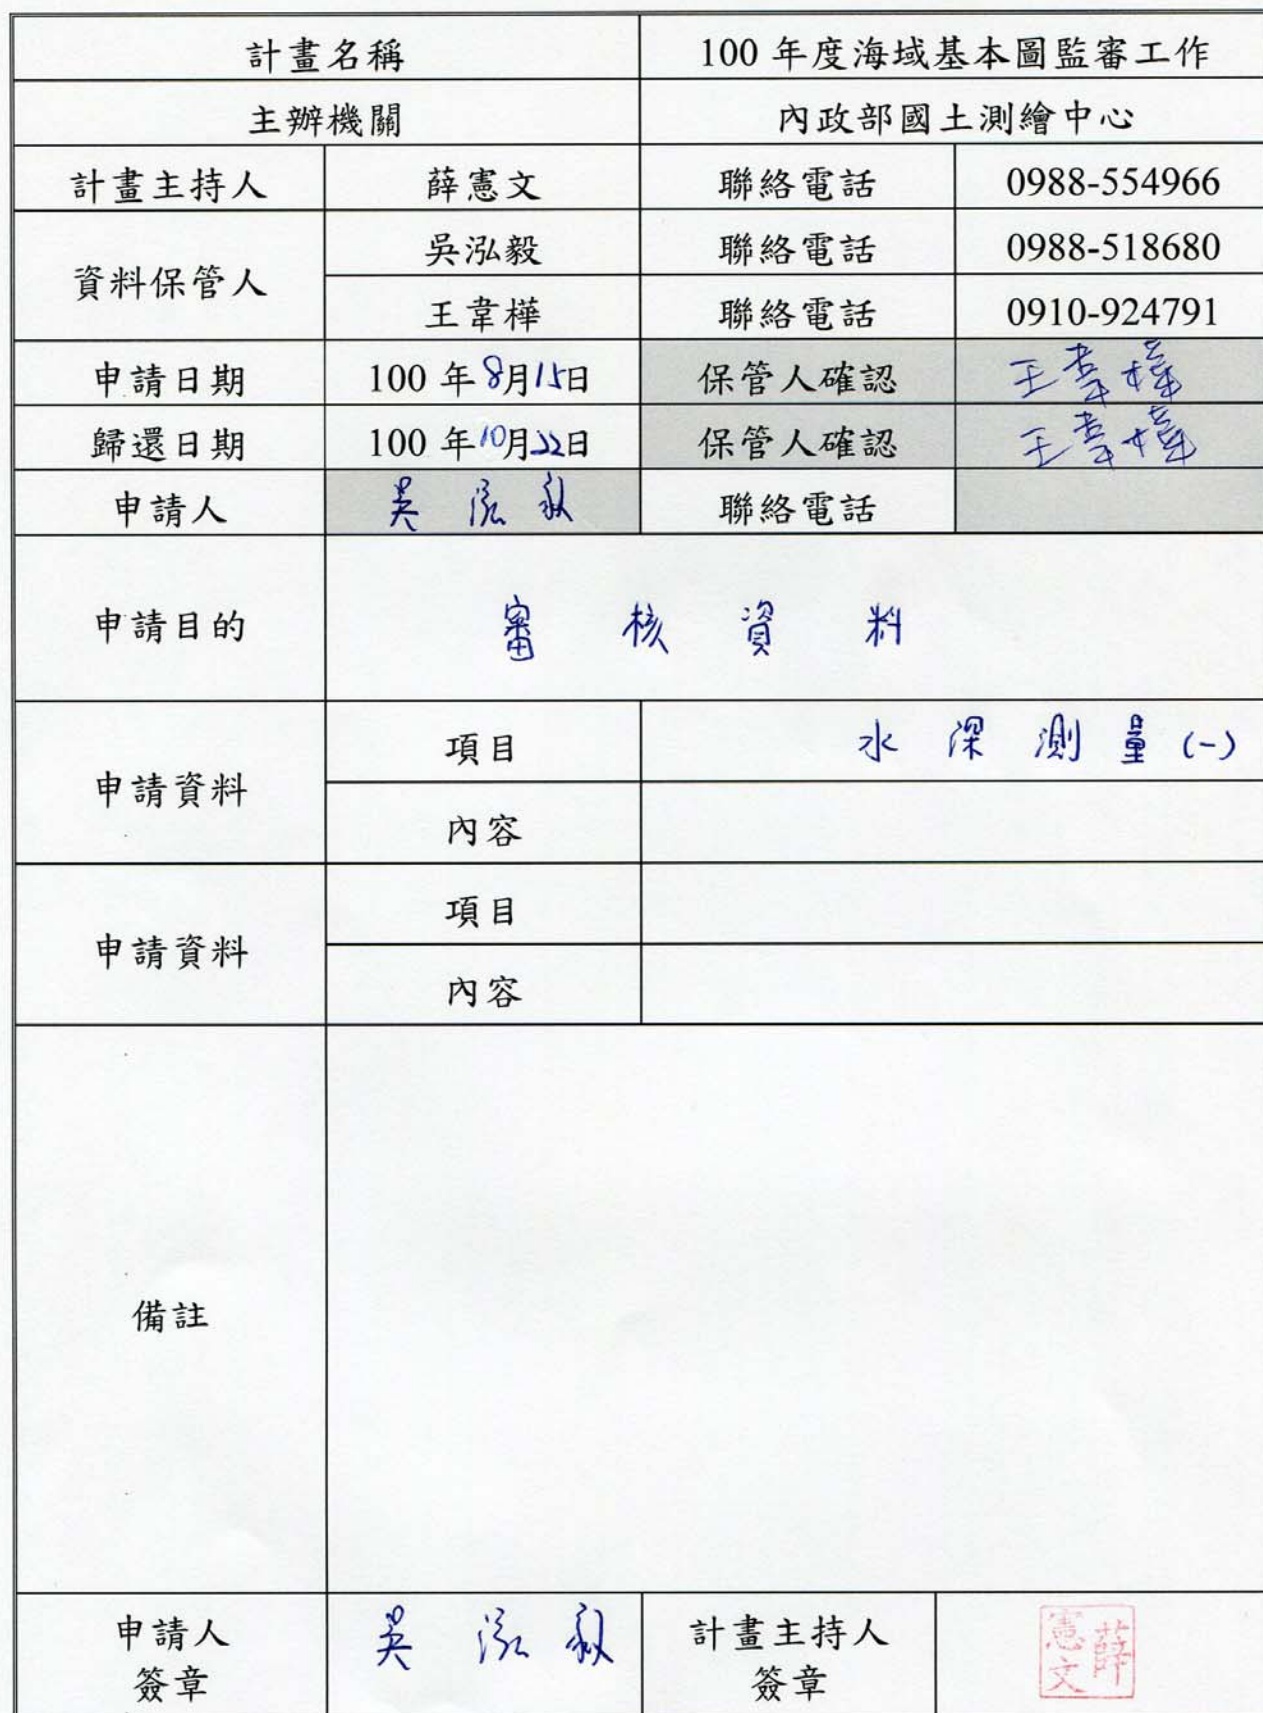 計畫名稱 100 年度海域基本圖監審工作
主辦機關 內政部國土測繪中心
計畫主持人 薛憲文 聯絡電話 0988-554966
資料保管人 吳泓毅 聯絡電話 0988-518680
王韋樺 聯絡電話 0910-924791
申請日期 100 年8月15日 保管人確認 王韋樺
歸還日期 100 年10月22日 保管人確認 王韋樺
申請人 吳泓毅 聯絡電話
申請目的 審核資料
申請資料 項目 水深測量(一)
內容
申請資料 項目
內容
備註
申請人 吳泓毅 計畫主持人 薛憲文
簽章 簽章